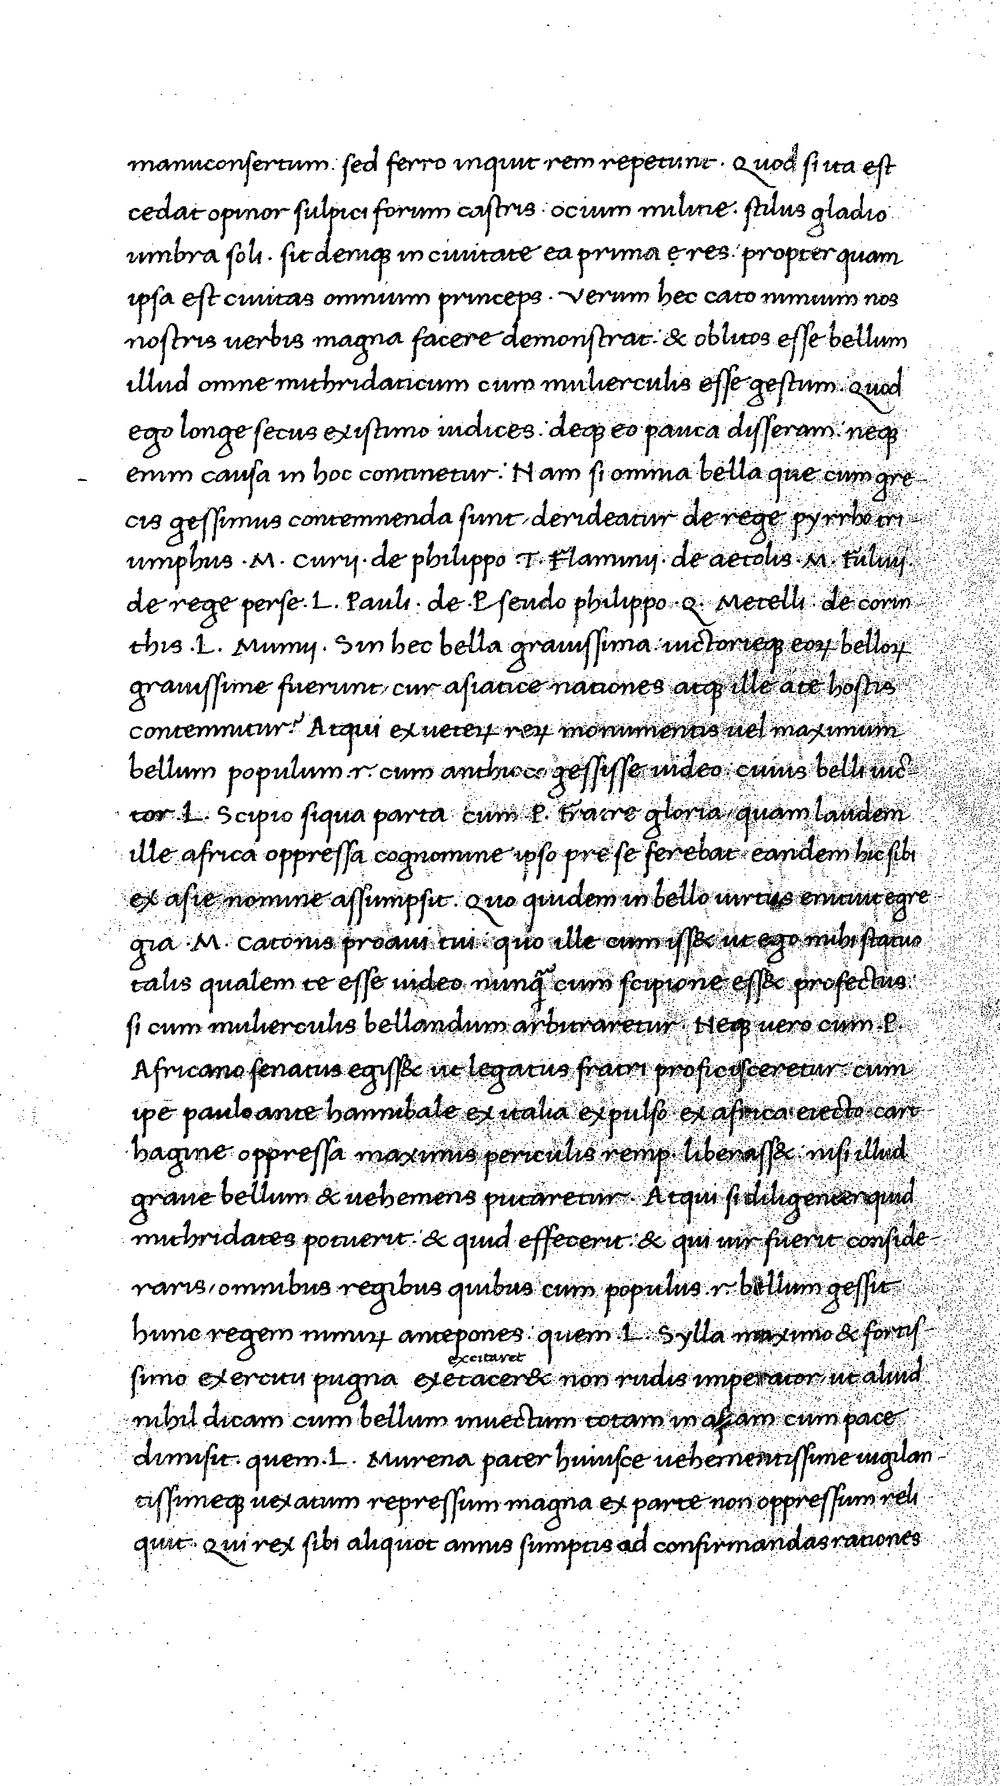 manuconsertum. sed ferro inquit rem repetunt. Quod si ita est
cedat opinor sulpici forum castris. ocium militie. stilus gladio
umbra soli. sit deniqꝫ in ciuitate ea prima ę res. propter quam
ipsa est ciuitas omnium princeps. Verum hec cato nimium nos
nostris uerbis magna facere demonstrat. & oblitos esse bellum
illud omne mithridaticum cum mulierculis esse gestum. Quod
ego longe secus existimo iudices. deqꝫ eo pauca disseram. neqꝫ
enim causa in hoc continetur. Nam si omnia bella que cum gre-
cis gessimus contemnenda sunt, derideatur de rege pyrrho tri-
umphus .M. Curii. de philippo .T. Flaminii. de aetolis .M. Fuluii.
de rege perse .L. Pauli. de .Pseudo philippo .Q. Metelli. de corin-
this .L. Mumii. Sin hec bella grauissima. uictorieqꝫ eoꝝ belloꝝ
grauissime fuerunt, cur asiatice nationes atqꝫ ille a te hostis
contemnitur? Atqui ex ueteꝝ reꝝ monumentis uel maximum
bellum populum .r. cum anthioco gessisse uideo. cuius belli uic-
tor .L. Scipio siqua parta cum .P. fratre gloria, quam laudem
ille africa oppressa cognomine ipso pre se ferebat. eandem hic sibi
ex asie nomine assumpsit. Quo quidem in bello uirtus enituit egre-
gia .M. Catonis proaui tui. quo ille cum iss& ut ego mihi statuo
talis qualem te esse uideo nunq̃ cum scipione ess& profectus.
si cum mulierculis bellandum arbitraretur. Neqꝫ uero cum .P.
Africano senatus egiss& ut legatus fratri proficisceretur. cum
ipe paulo ante hannibale ex italia expulso ex africa eiecto cart-
hagine oppressa maximis periculis remp. liberass&. nisi illud
graue bellum & uehemens putaretur. Atqui si diligenter quid
mithridates potuerit. & quid effecerit. & qui uir fuerit conside-
raris, omnibus regibus quibus cum populus .r. bellum gessit
hunc regem nimiꝝ antepones. quem .L. Sylla maximo & fortis-
excitaret
simo exercitu pugna exetacer& non rudis imperator, ut aliud
nihil dicam cum bellum inuectum totam in asiam cum pace
dimisit. quem .L. Murena pater huiusce uehementissime uigilan-
tissimeqꝫ uexatum repressum magna ex parte non oppressum reli-
quit. Qui rex sibi aliquot annis sumptis ad confirmandas rationes